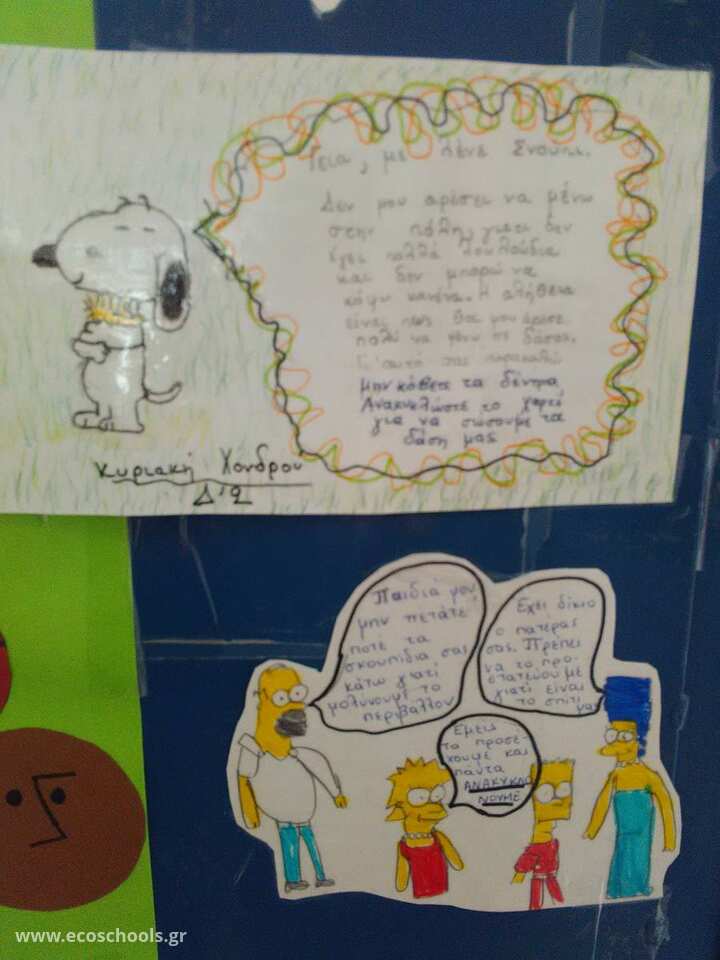 Γεια, με λένε Σνούπι.
Δεν μου αρέσει να μένω
στην πόλη, γιατί δεν
έχει πολλά λουλούδια
και δεν μπορώ να
κόψω κανένα. Η αλήθεια
είναι πως θα μου άρεσε
πολύ να μένω σε δάσος.
Γι'αυτό σας παρακαλώ
μην κόβετε τα δέντρα
Ανακυκλώστε το χαρτί
για να σώσουμε τα
δάση μας
Κυριακή Χονδρου
Δ'2
Παιδιά μου
μην πετάτε
ποτέ τα
σκουπίδια σας
κάτω γιατί
μολύνουμε το
περιβάλλον
Έχει δίκιο
ο πατέρας
σας. Πρέπει
να το προ-
στατεύουμε
γιατί είναι
το σπίτι
μας
Εμείς
το προσέ-
χουμε και
πάντα
ΑΝΑΚΥΚΛΩ
ΝΟΥΜΕ
www.ecoschools.gr